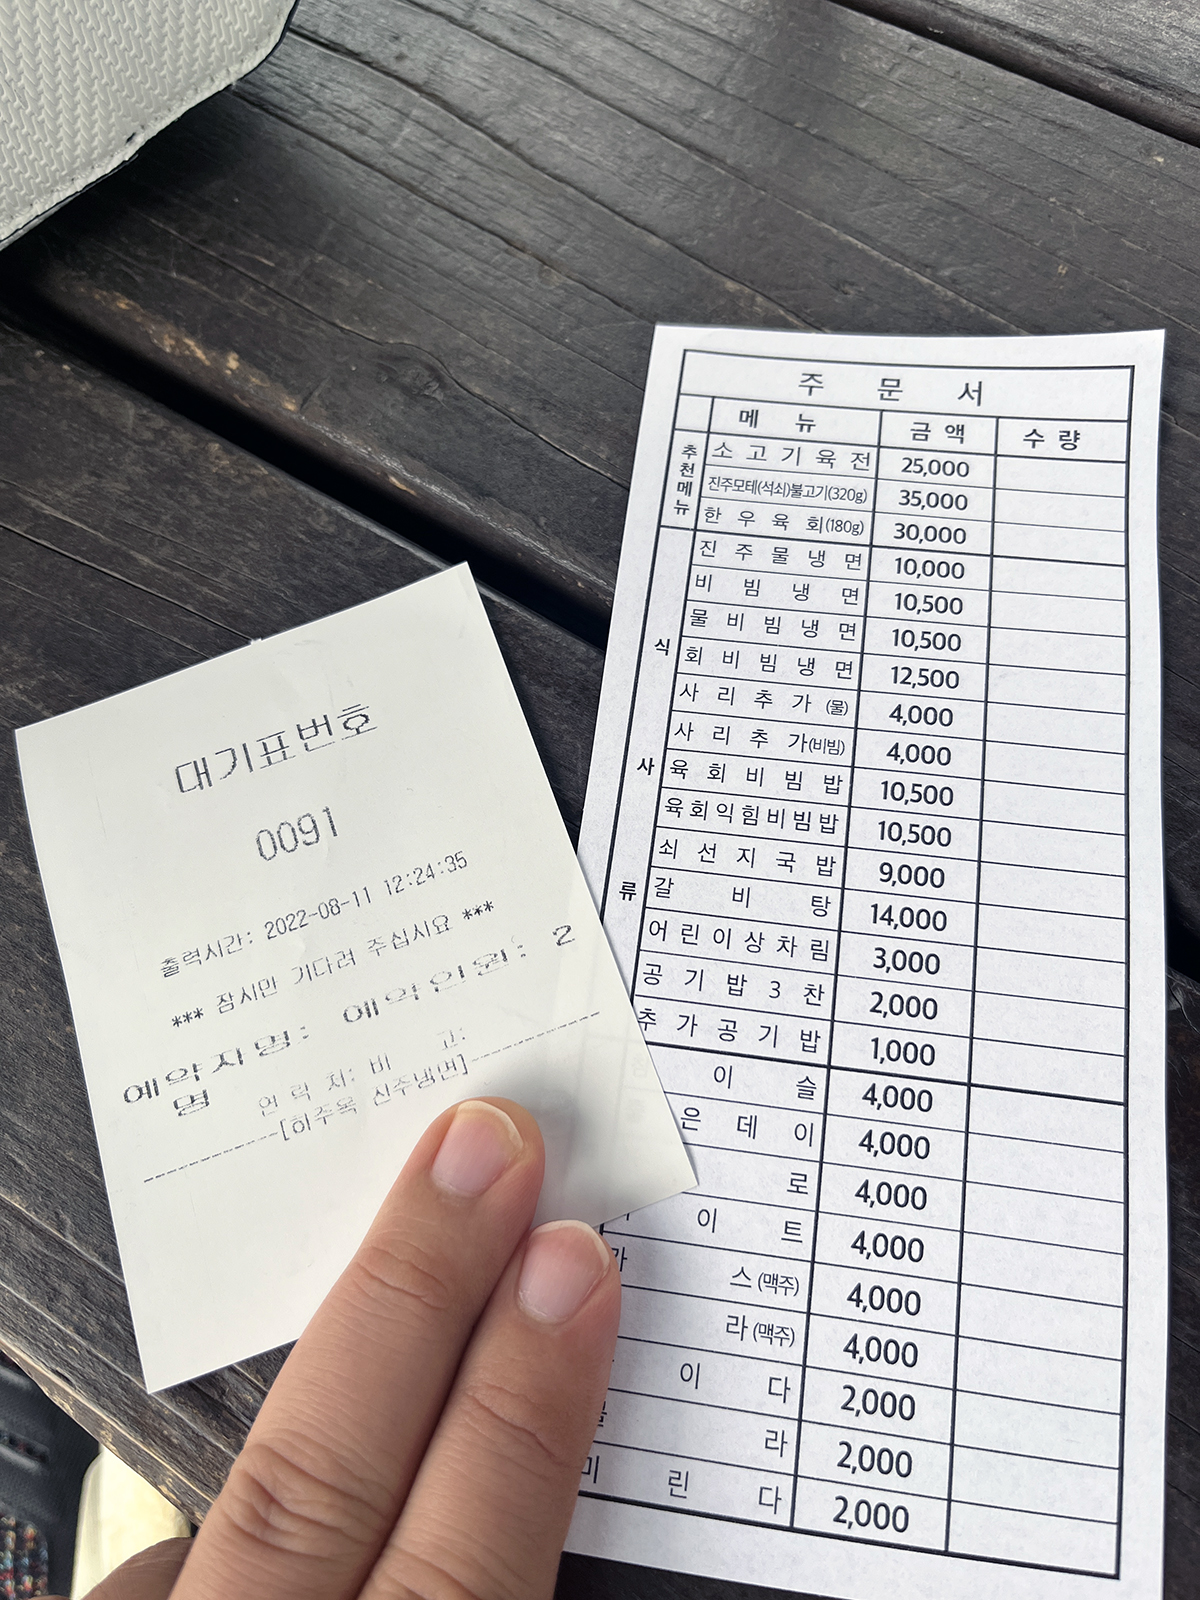 대기표번호
0091
출력시간: 2022-08-11 12:24:35
*** 잠시만 기다려 주십시요 ***
예약자명: 예약인원: 2
명
연 락 처: 비 고:
[하주옥 진주냉면]
주 문 서
메 뉴 금 액 수 량
추천메뉴
소 고 기 육 전 25,000
진주모테(석쇠)불고기(320g) 35,000
한 우 육 회 (180g) 30,000
식 사 류
진 주 물 냉 면 10,000
비 빔 냉 면 10,500
물 비 빔 냉 면 10,500
회 비 빔 냉 면 12,500
사 리 추 가 (물) 4,000
사 리 추 가 (비빔) 4,000
육 회 비 빔 밥 10,500
육회익힘비빔밥 10,500
쇠 선 지 국 밥 9,000
갈 비 탕 14,000
어린이상차림 3,000
공 기 밥 3 찬 2,000
추 가 공 기 밥 1,000
이 슬 4,000
은 데 이 4,000
로 4,000
이 트 4,000
스 (맥주) 4,000
라 (맥주) 4,000
이 다 2,000
라 2,000
미 린 다 2,000